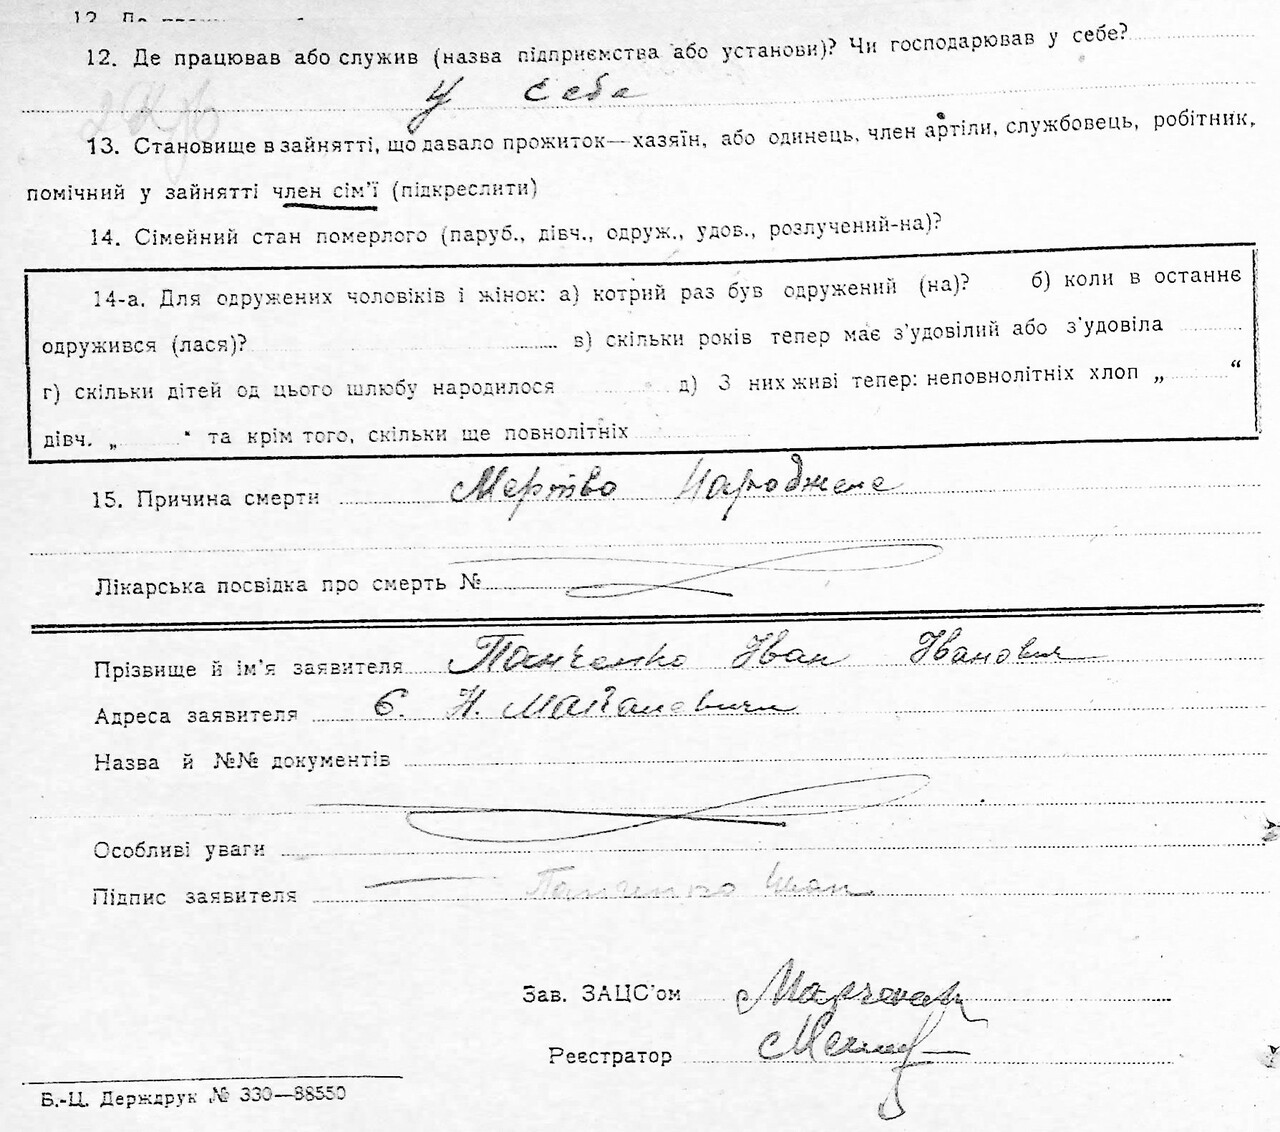 12. Де працював або служив (назва підприємства або установи)? Чи господарював у себе?
у себе
13. Становище в зайнятті, що давало прожиток—хазяїн, або одинець, член артіли, службовець, робітник,
помічний у зайнятті член сім'ї (підкреслити)
14. Сімейний стан померлого (паруб., дівч., одруж., удов., розлучений-на)?
14-а. Для одружених чоловіків і жінок: а) котрий раз був одружений (на)? б) коли в останнє
одружився (лася)? в) скільки років тепер має з'удовілий або з'удовіла
г) скільки дітей од цього шлюбу народилося д) З них живі тепер: неповнолітніх хлоп „ “
дівч. „ “ та крім того, скільки ще повнолітніх
15. Причина смерти Мертво Народжене
Лікарська посвідка про смерть №
Прізвище й ім'я заявителя Панченко Іван Іванович
Адреса заявителя с. Н. Майдановичи
Назва й №№ документів
Особливі уваги
Підпис заявителя Панченко Иван
Зав. ЗАЦС'ом
Реєстратор
Б.-Ц. Держдрук № 330—88550